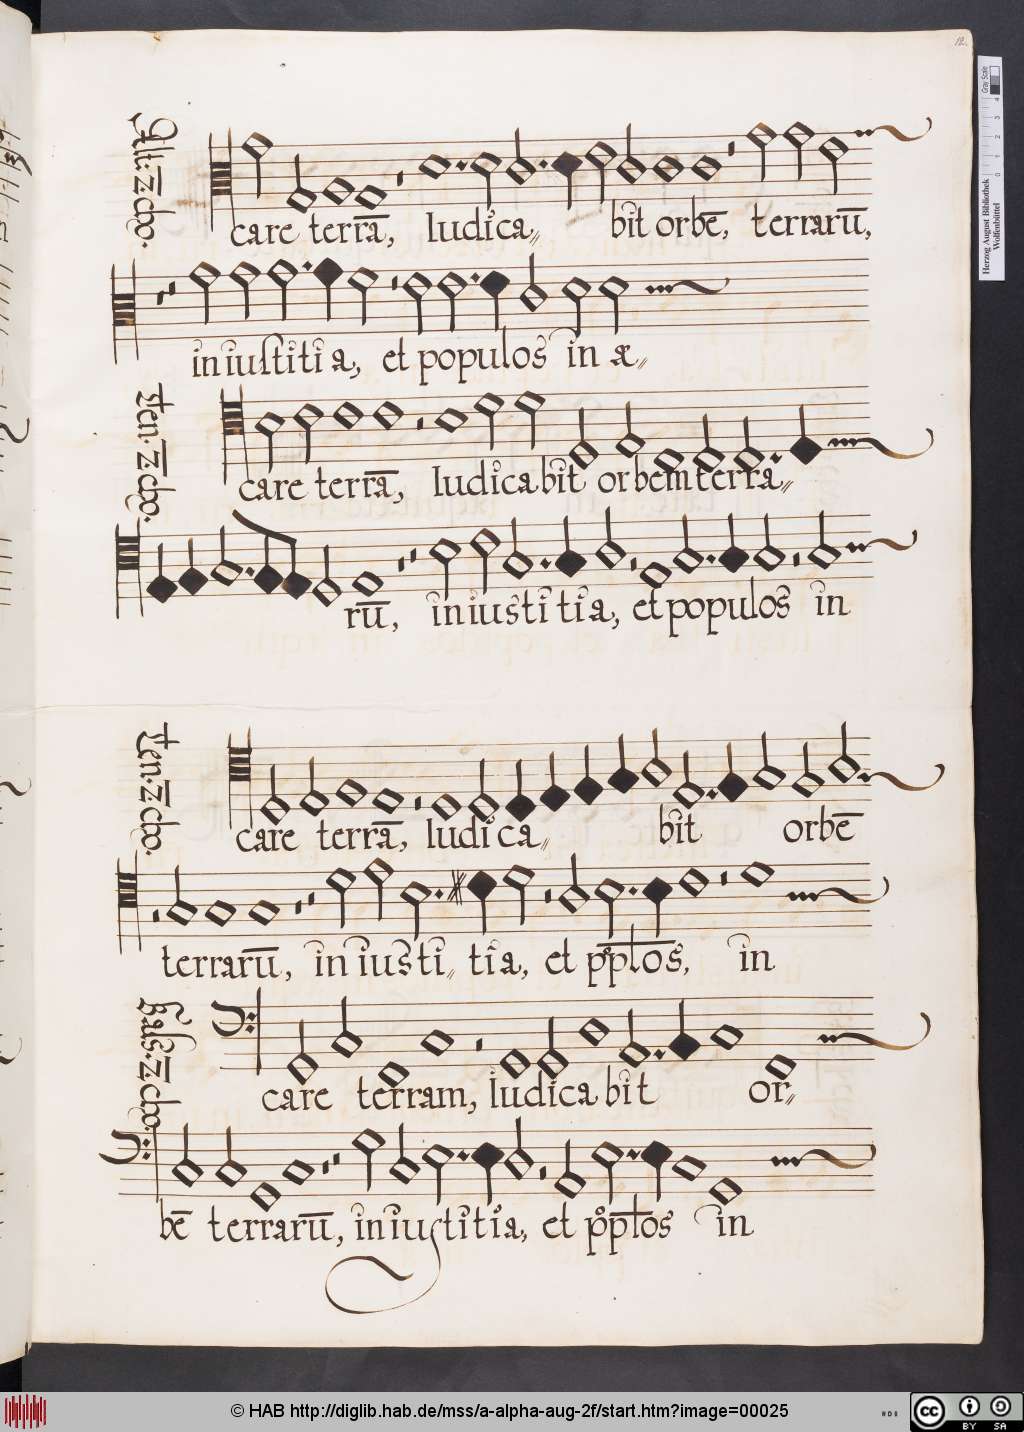 12.
Alt: 2: cho.
care terrā, Iudica„ bit orbē, terrarū,
in iustitia, et populos in æ„
Ten. 2: cho.
care terrā, Iudicabit orbem terra„
rū, in iustitia, et populos in
Ten. 2: cho.
care terrā, Iudica„ bit orbē
terrarū, in iusti„ tia, et pp̄los, in
Bass. 2: cho.
care terram, Iudicabit or„
bē terrarū, in iustitia, et pp̄los in
Gray Scale
0 1 2 3 4
Herzog August Bibliothek
Wolfenbüttel
© HAB http://diglib.hab.de/mss/a-alpha-aug-2f/start.htm?image=00025
cc
BY SA